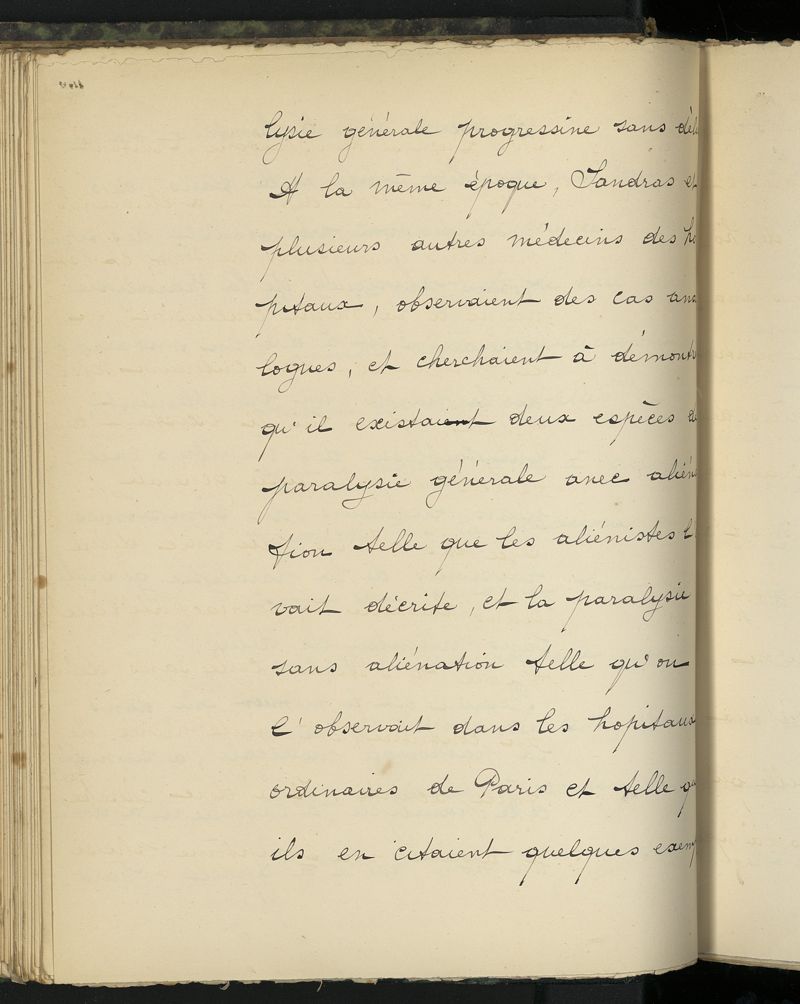 lysie générale progressine sans dél
A la même époque, Sandras et
plusieurs autres médecins des hô
pitaux, observaient des cas ana
logues, et cherchaient à démontr
qu'il existaient deux espèces d
paralysie générale avec aliéna
tion telle que les aliénistes l'
vait décrite, et la paralysie
sans aliénation telle qu'on
l'observait dans les hopitaux
ordinaires de Paris et telle qu
ils en citaient quelques exemp